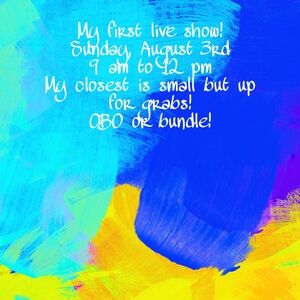 My first live show!
Sunday, August 3rd
9 am to 12 pm
My closest is small but up
for grabs!
OBO or bundle!